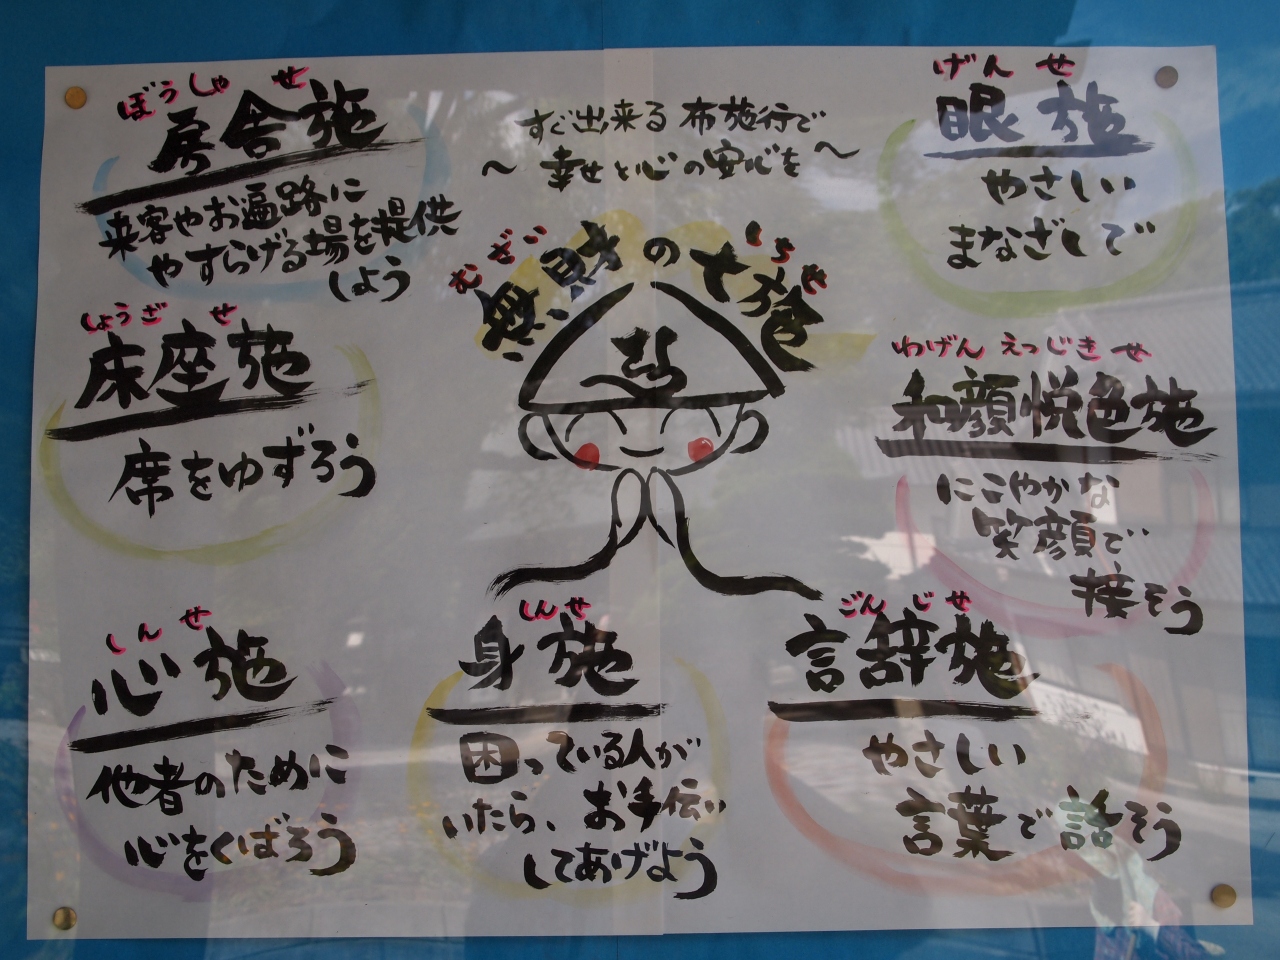 すぐ出来る布施行で
〜幸せと心の安心を〜
むざい しちせ
無財の七施
げん せ
眼施
やさしい
まなざしで
わげん えつじき せ
和顔悦色施
にこやかな
笑顔で
接そう
ごんじせ
言辞施
やさしい
言葉で話そう
しんせ
身施
困っている人が
いたら、お手伝い
してあげよう
しんせ
心施
他者のために
心をくばろう
しょうざ せ
床座施
席をゆずろう
ぼうしゃ せ
房舎施
来客やお遍路に
やすらげる場を提供
しよう